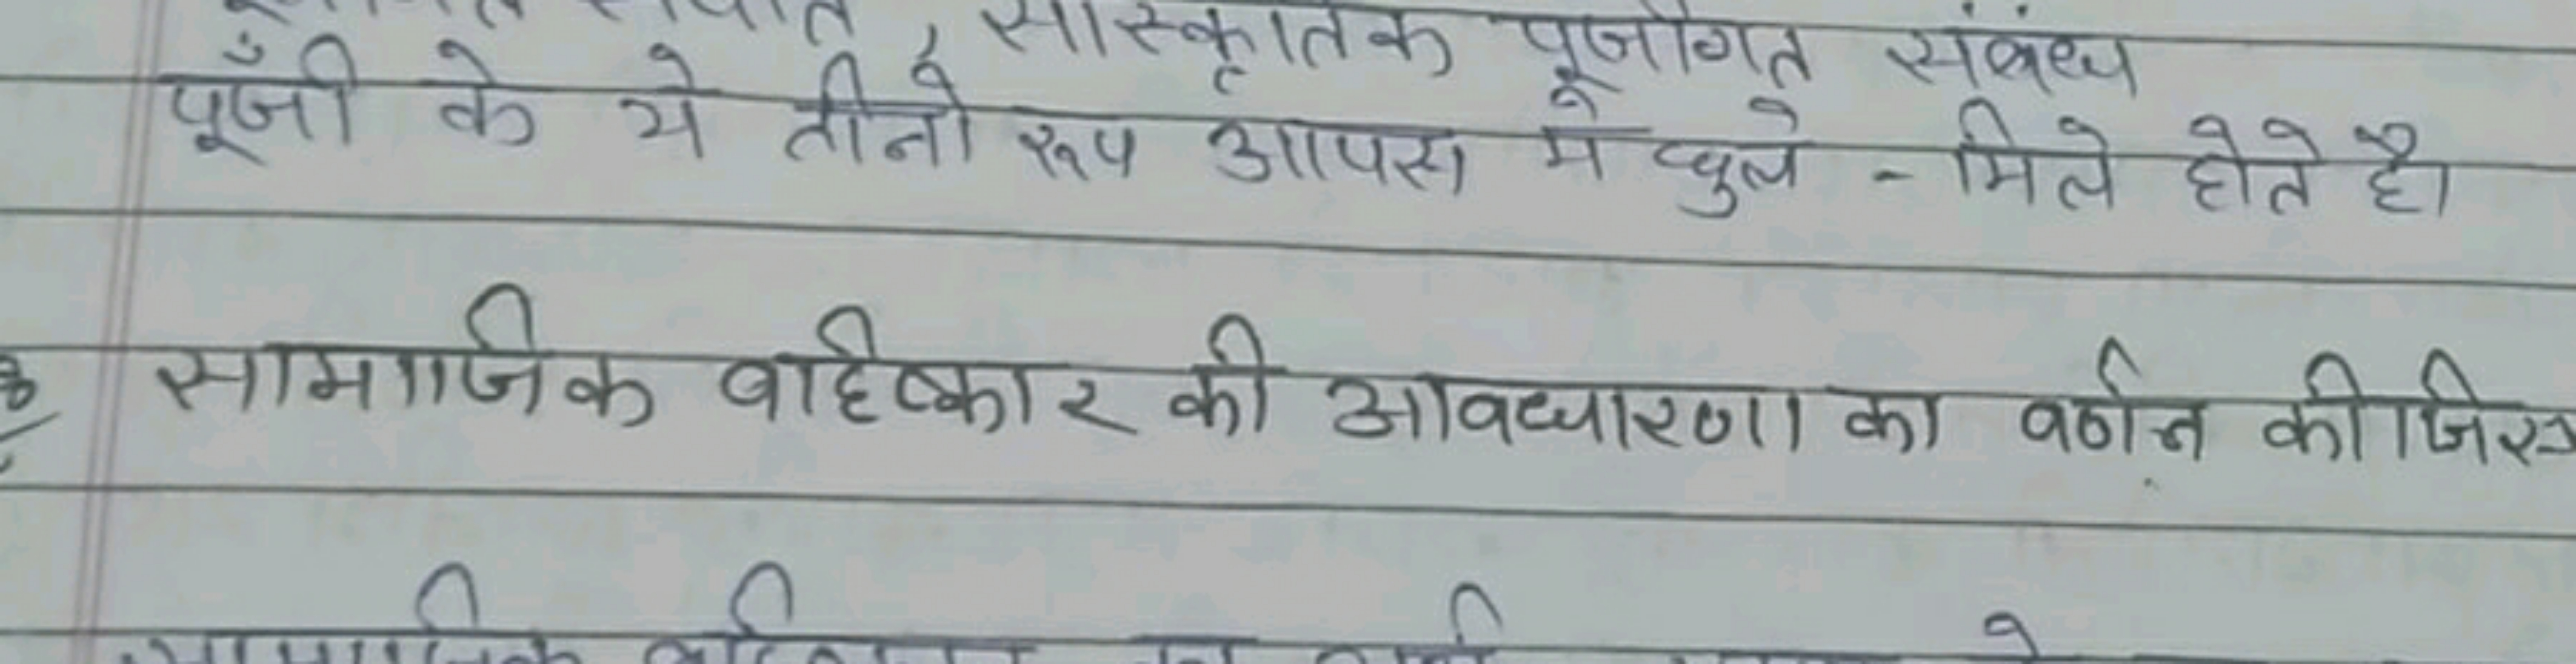 , सांस्कृतिक पूंजीगत संबंध
पूँजी के ये तीनों रूप आपस में घुले - मिले होते है।
सामाजिक बहिष्कार की आवधारणा का वर्णन कीजिए